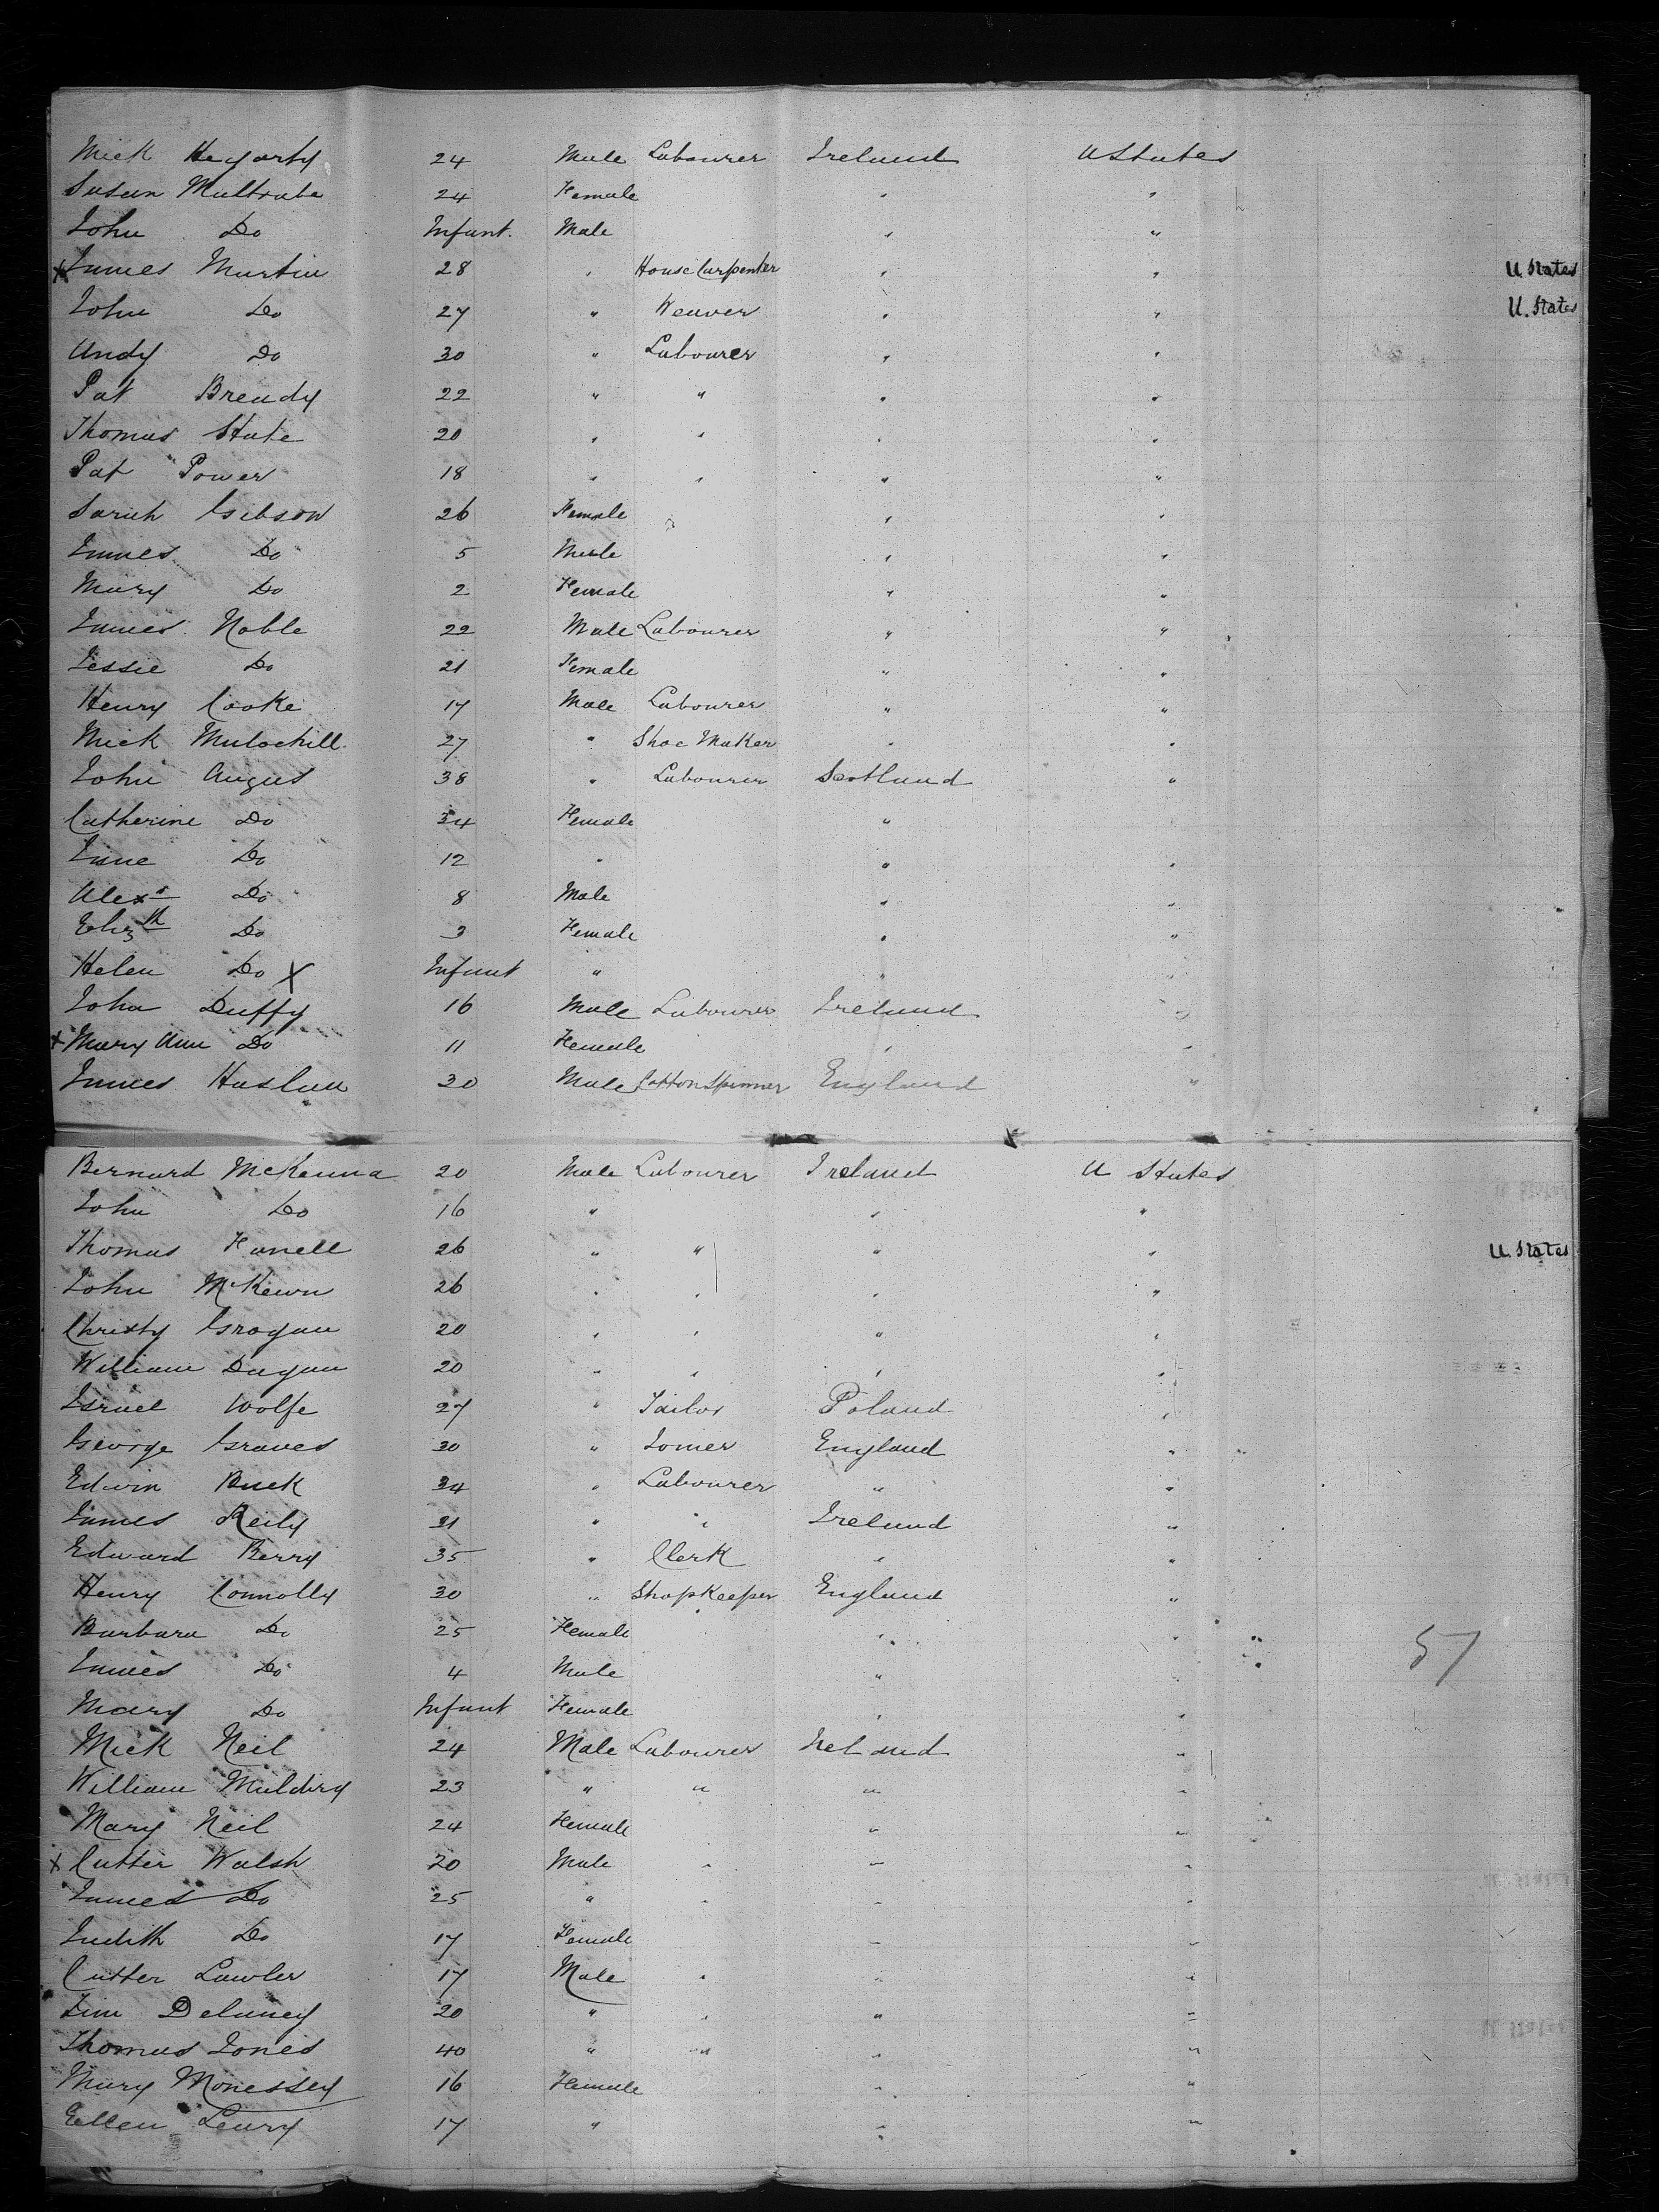 Mick Hegarty 24 Male Labourer Ireland U States
Susan Multrabe 24 Female " "
John Do Infant. Male " "
x James Martin 28 " House Carpenter " " U. States
John Do 27 " Weaver " " U. States
Andy Do 30 " Labourer " "
Pat Bready 22 " " " "
Thomas State 20 " " " "
Pat Power 18 " " " "
Sarah Gibson 26 Female " "
James Do 5 Male " "
Mary Do 2 Female " "
James Noble 22 Male Labourer " "
Jessie Do 21 Female " "
Henry Cooke 17 Male Labourer " "
Mick Mulochill 27 " Shoe Maker " "
John Angus 38 " Labourer Scotland "
Catherine Do 34 Female " "
Jane Do 12 " " "
Alexr Do 8 Male " "
Elizth Do 3 Female " "
Helen Do x Infant " " "
John Duffy 16 Male Labourer Ireland "
x Mary Ann Do 11 Female " "
James Haslam 30 Male Cotton Spinner England "
Bernard McKenna 20 Male Labourer Ireland U States
John Do 16 " " "
Thomas Hanell 26 " " " " U. States
John McKewn 26 " " " "
Christy Grogan 20 " " " "
William Dugan 20 " " " "
Israel Wolfe 27 " Tailor Poland "
George Graves 30 " Joiner England "
Edwin Buck 34 " Labourer " "
James Reily 21 " " Ireland "
Edward Berry 35 " Clerk " "
Henry Connolly 30 " Shopkeeper England "
Barbara Do 25 Female " "
James Do 4 Male " " 57
Mary Do Infant Female " "
Mick Neil 24 Male Labourer Ireland "
William Muldiry 23 " " " "
Mary Neil 24 Female " "
x Cutter Walsh 20 Male " " "
James Do 25 " " " "
Judith Do 17 Female " "
Cutter Lawler 17 Male " " "
Jim Delaney 20 " " " "
Thomas Jones 40 " " " "
Mary Monessey 16 Female " "
Ellen Leary 17 " " "